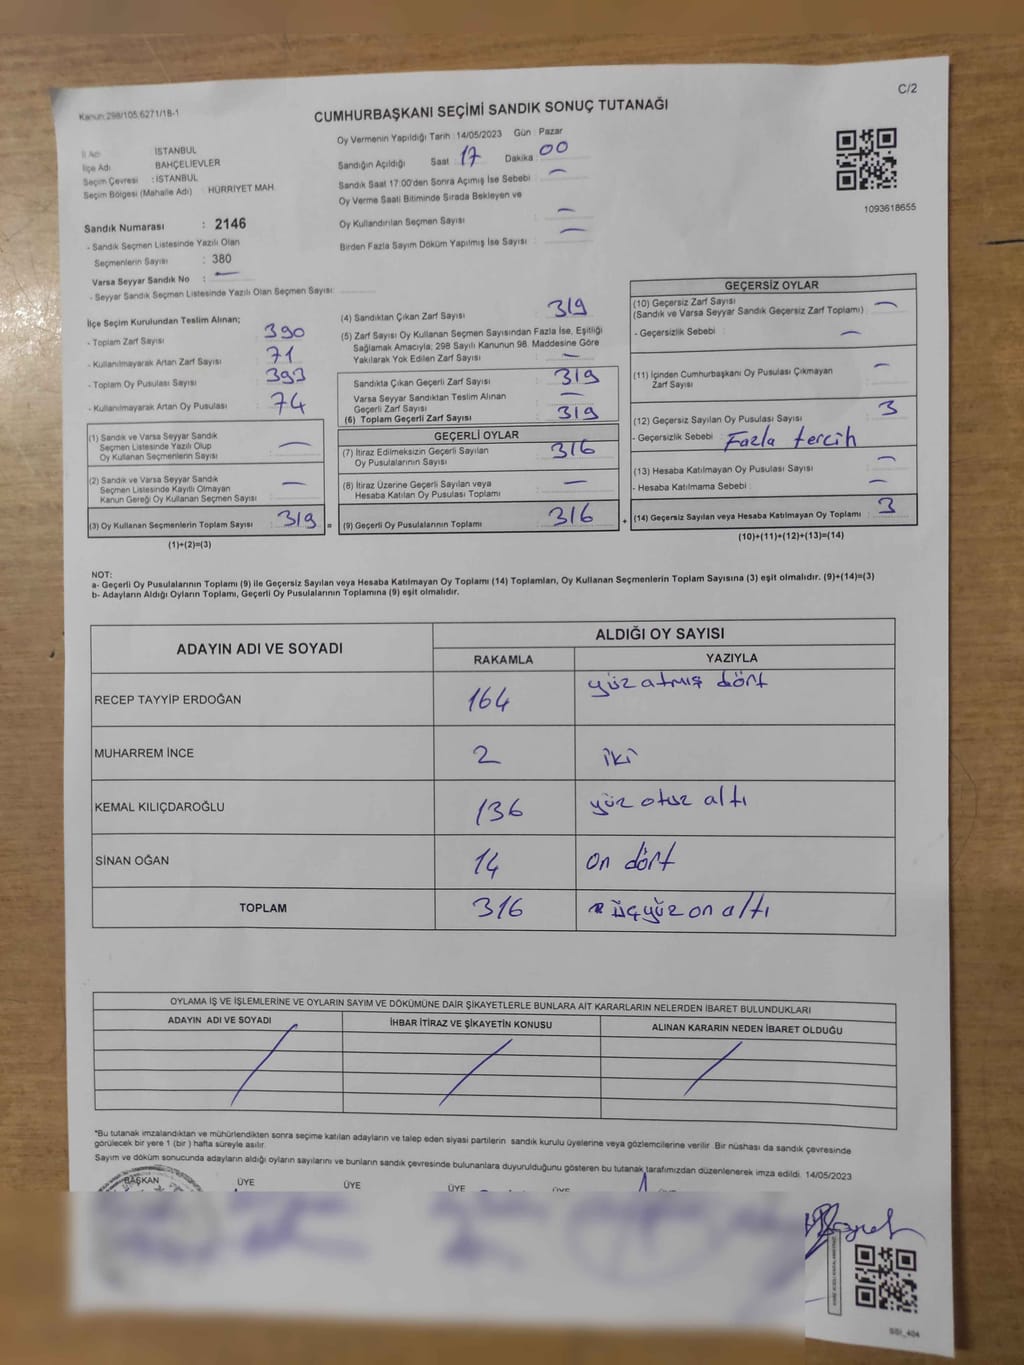 Kanun:298/105.6271/18-1
C/2
CUMHURBAŞKANI SEÇİMİ SANDIK SONUÇ TUTANAĞI
İl Adı : İSTANBUL
İlçe Adı : BAHÇELİEVLER
Seçim Çevresi : İSTANBUL
Seçim Bölgesi (Mahalle Adı) : HÜRRİYET MAH.
Sandık Numarası : 2146
- Sandık Seçmen Listesinde Yazılı Olan
Seçmenlerin Sayısı : 380
Varsa Seyyar Sandık No : —
- Seyyar Sandık Seçmen Listesinde Yazılı Olan Seçmen Sayısı:
Oy Vermenin Yapıldığı Tarih : 14/05/2023 Gün : Pazar
Sandığın Açıldığı Saat : 17 Dakika : 00
Sandık Saat 17:00'den Sonra Açımış İse Sebebi : —
Oy Verme Saati Bitiminde Sırada Bekleyen ve
Oy Kullandırılan Seçmen Sayısı : —
Birden Fazla Sayım Döküm Yapılmış İse Sayısı : —
1093618655
İlçe Seçim Kurulundan Teslim Alınan;
- Toplam Zarf Sayısı : 390
- Kullanılmayarak Artan Zarf Sayısı : 71
- Toplam Oy Pusulası Sayısı : 393
- Kullanılmayarak Artan Oy Pusulası : 74
(1) Sandık ve Varsa Seyyar Sandık
Seçmen Listesinde Yazılı Olup
Oy Kullanan Seçmenlerin Sayısı : —
(2) Sandık ve Varsa Seyyar Sandık
Seçmen Listesinde Kayıtlı Olmayan
Kanun Gereği Oy Kullanan Seçmen Sayısı : —
(3) Oy Kullanan Seçmenlerin Toplam Sayısı : 319 =
(1)+(2)=(3)
(4) Sandıktan Çıkan Zarf Sayısı : 319
(5) Zarf Sayısı Oy Kullanan Seçmen Sayısından Fazla İse, Eşitliği
Sağlamak Amacıyla; 298 Sayılı Kanunun 98. Maddesine Göre
Yakılarak Yok Edilen Zarf Sayısı : —
Sandıkta Çıkan Geçerli Zarf Sayısı : 319
Varsa Seyyar Sandıktan Teslim Alınan
Geçerli Zarf Sayısı : —
(6) Toplam Geçerli Zarf Sayısı : 319
GEÇERLİ OYLAR
(7) İtiraz Edilmeksizin Geçerli Sayılan
Oy Pusulalarının Sayısı : 316
(8) İtiraz Üzerine Geçerli Sayılan veya
Hesaba Katılan Oy Pusulası Toplamı : —
(9) Geçerli Oy Pusulalarının Toplamı : 316 +
GEÇERSİZ OYLAR
(10) Geçersiz Zarf Sayısı
(Sandık ve Varsa Seyyar Sandık Geçersiz Zarf Toplamı) : —
- Geçersizlik Sebebi : —
(11) İçinden Cumhurbaşkanı Oy Pusulası Çıkmayan
Zarf Sayısı : —
(12) Geçersiz Sayılan Oy Pusulası Sayısı : 3
- Geçersizlik Sebebi : Fazla tercih
(13) Hesaba Katılmayan Oy Pusulası Sayısı : —
- Hesaba Katılmama Sebebi : —
(14) Geçersiz Sayılan veya Hesaba Katılmayan Oy Toplamı : 3
(10)+(11)+(12)+(13)=(14)
NOT:
a- Geçerli Oy Pusulalarının Toplamı (9) ile Geçersiz Sayılan veya Hesaba Katılmayan Oy Toplamı (14) Toplamları, Oy Kullanan Seçmenlerin Toplam Sayısına (3) eşit olmalıdır. (9)+(14)=(3)
b- Adayların Aldığı Oyların Toplamı, Geçerli Oy Pusulalarının Toplamına (9) eşit olmalıdır.
ADAYIN ADI VE SOYADI ALDIĞI OY SAYISI
RAKAMLA YAZIYLA
RECEP TAYYİP ERDOĞAN 164 yüz atmış dört
MUHARREM İNCE 2 iki
KEMAL KILIÇDAROĞLU 136 yüz otuz altı
SİNAN OĞAN 14 on dört
TOPLAM 316 üçyüz on altı
OYLAMA İŞ VE İŞLEMLERİNE VE OYLARIN SAYIM VE DÖKÜMÜNE DAİR ŞİKAYETLERLE BUNLARA AİT KARARLARIN NELERDEN İBARET BULUNDUKLARI
ADAYIN ADI VE SOYADI İHBAR İTİRAZ VE ŞİKAYETİN KONUSU ALINAN KARARIN NEDEN İBARET OLDUĞU
*Bu tutanak imzalandıktan ve mühürlendikten sonra seçime katılan adayların ve talep eden siyasi partilerin sandık kurulu üyelerine veya gözlemcilerine verilir. Bir nüshası da sandık çevresinde
görülecek bir yere 1 (bir ) hafta süreyle asılır.
Sayım ve döküm sonucunda adayların aldığı oyların sayılarını ve bunların sandık çevresinde bulunanlara duyurulduğunu gösteren bu tutanak tarafımızdan düzenlenerek imza edildi. 14/05/2023
BAŞKAN ÜYE ÜYE ÜYE ÜYE ÜYE
SSİ_404